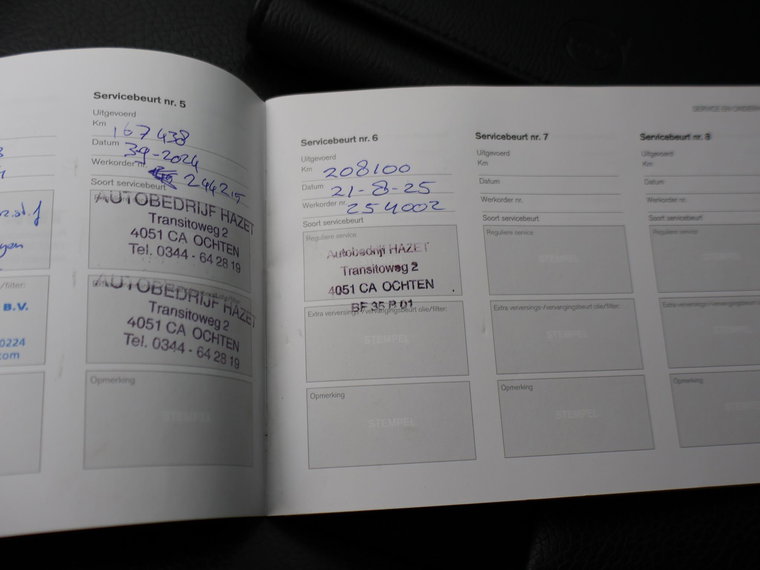 Servicebeurt nr. 5
Uitgevoerd
Km 167438
Datum 3-9-2024
Werkorder nr. 244215
Soort servicebeurt
AUTOBEDRIJF HAZET
Transitoweg 2
4051 CA OCHTEN
Tel. 0344 - 64 28 19
AUTOBEDRIJF HAZET
Transitoweg 2
4051 CA OCHTEN
Tel. 0344 - 64 28 19
Opmerking
STEMPEL
/filter:
B.V.
0224
com
Servicebeurt nr. 6
Uitgevoerd
Km 208100
Datum 21-8-25
Werkorder nr. 254002
Soort servicebeurt
Reguliere service
Autobedrijf HAZET
Transitoweg 2
4051 CA OCHTEN
BE 35 R 01
Extra verversings-/vervangingsbeurt olie/filter:
STEMPEL
Opmerking
STEMPEL
Servicebeurt nr. 7
Uitgevoerd
Km
Datum
Werkorder nr.
Soort servicebeurt
Reguliere service
Extra verversings-/vervangingsbeurt olie/filter:
STEMPEL
Opmerking
STEMPEL
SERVICE EN ONDERH
Servicebeurt nr. 8
Uitgevoerd
Km
Datum
Werkorder nr.
Soort servicebeurt
Reguliere service
Extra verversings-/vervangingsbeurt
STEMPEL
Opmerking
STEMPEL